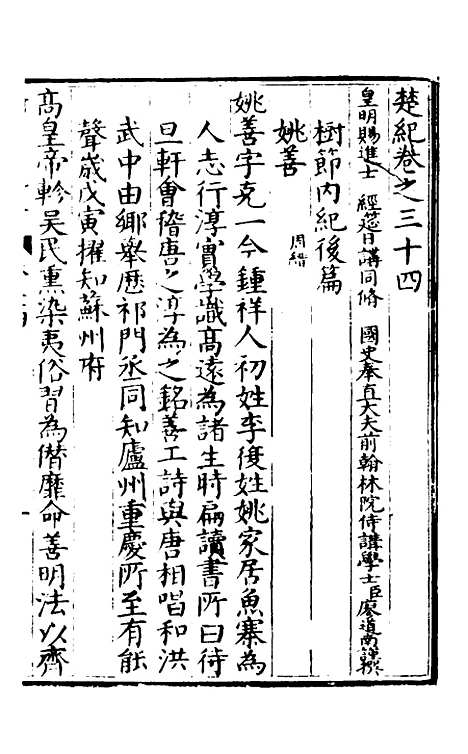 楚紀卷之三十四
皇明賜進士 經筵日講同脩 國史奉直大夫前翰林院侍講學士臣廖道南謹撰
樹節內紀後篇
姚善 周縉
姚善字克一今鍾祥人初姓李復姓姚家居魚寨為
人志行淳實學識高遠為諸生時扁讀書所曰待
旦軒會稽唐之淳為之銘善工詩與唐相唱和洪
武中由鄉舉歷祁門丞同知廬州重慶所至有能
聲歲戊寅擢知蘇州府
高皇帝軫吳民熏染夷俗習為僭靡命善明法以齊